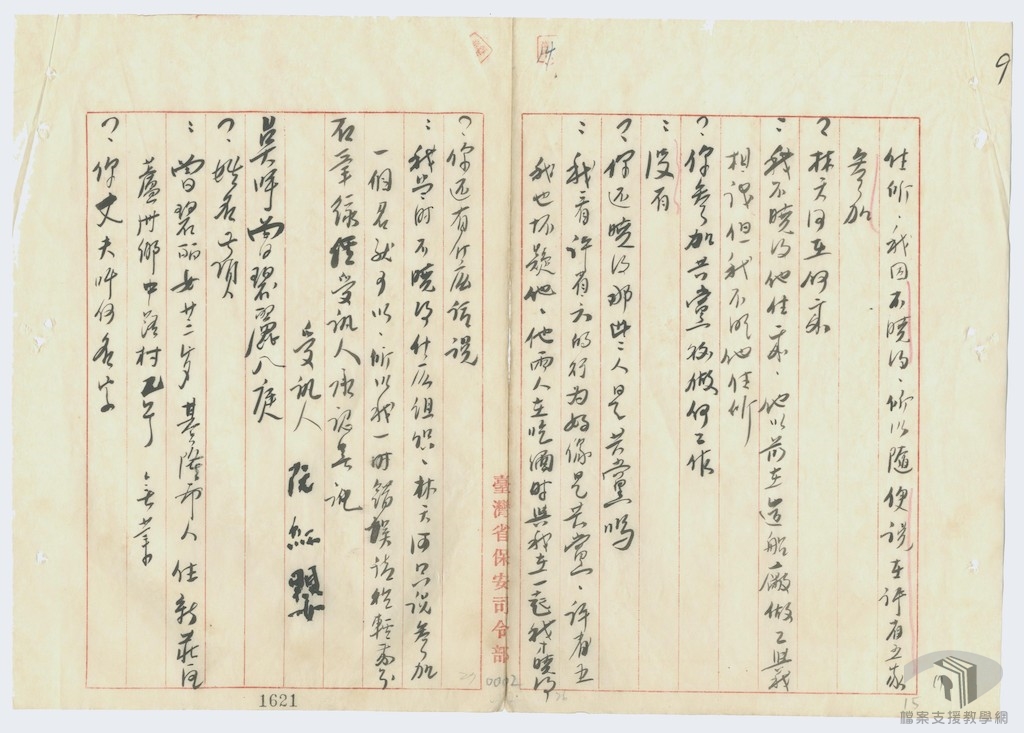 9
住所、我因不曉得、所以隨便說在許有立家
參加
？林天河在何家
：我不曉得他住家、他以前在造船廠做工與我
相識但我不明他住所
？你參加共黨後做何工作
：沒有
？你還曉得那些人是共黨嗎
：我看許有立的行為好像是共黨、許有立
我也懷疑他、他兩人在吃酒時與我在一起我才曉得
臺灣省保安司令部
？你還有什麼話說
：我當時不曉得什麼組織、林天河只說參加
一個名就可以、所以我一時錯誤請從輕處分
右筆錄經受訊人承認無訛
受訊人 阮紅嬰
點呼曾碧麗入庭
？姓名等項
：曾碧麗女廿二歲 基隆市人 住新莊區
蘆洲鄉中路村 無業
？你丈夫叫何名字
1621
0002
15
檔案支援教學網